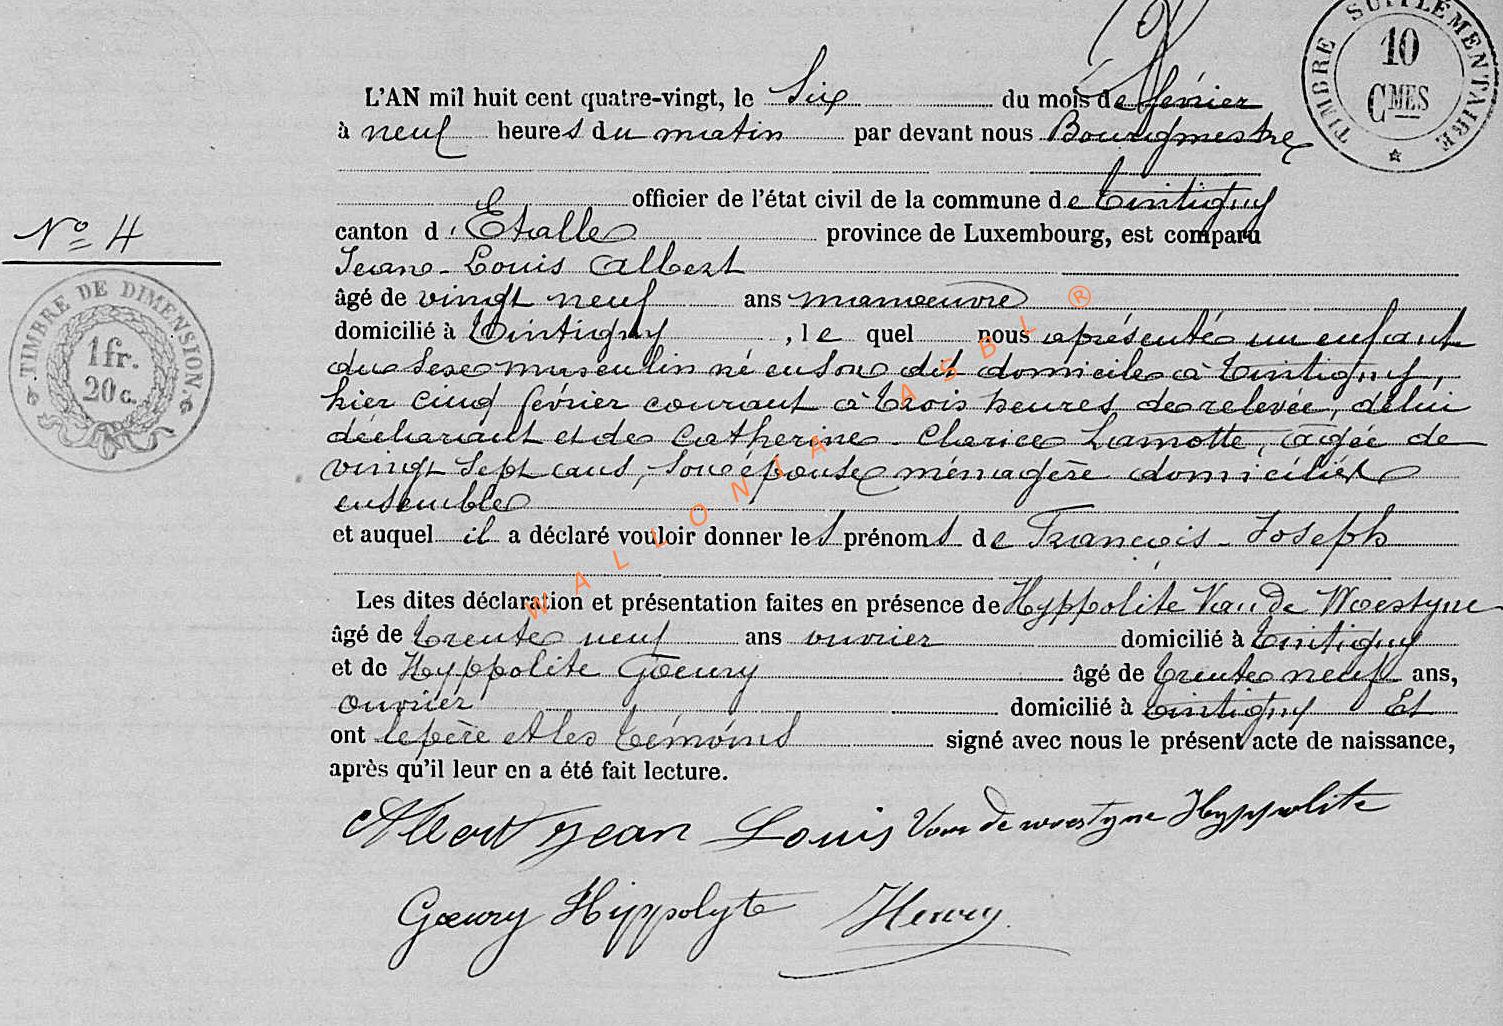 TIMBRE SUPPLÉMENTAIRE
10
CMES
L'AN mil huit cent quatre-vingt, le Six du mois de février
à neuf heures du matin par devant nous Bourgmestre
officier de l'état civil de la commune de Tintigny
canton d'Etalle province de Luxembourg, est comparu
Jean-Louis Albert
âgé de vingt neuf ans manœuvre
domicilié à Tintigny, le quel nous a présenté un enfant
du sexe masculin né en son dit domicile à Tintigny,
hier cinq février courant à trois heures de relevée, de lui
déclarant et de Catherine-Clarice Lamotte, agée de
vingt Sept ans, son épouse ménagère domiciliés
ensemble
et auquel il a déclaré vouloir donner les prénoms de François-Joseph
Les dites déclaration et présentation faites en présence de Hyppolite Van de Woestyne
âgé de trente neuf ans ouvrier domicilié à Tintigny
et de Hyppolite Gœury âgé de trente neuf ans,
ouvrier domicilié à Tintigny Et
ont le père et les témoins signé avec nous le présent acte de naissance,
après qu'il leur en a été fait lecture.
Albert jean Louis Van de woestyne Hyppolite
Gœury Hippolyte Henry
No 4
TIMBRE DE DIMENSION
1 fr.
20 c.
WALLONIA ASBL ®